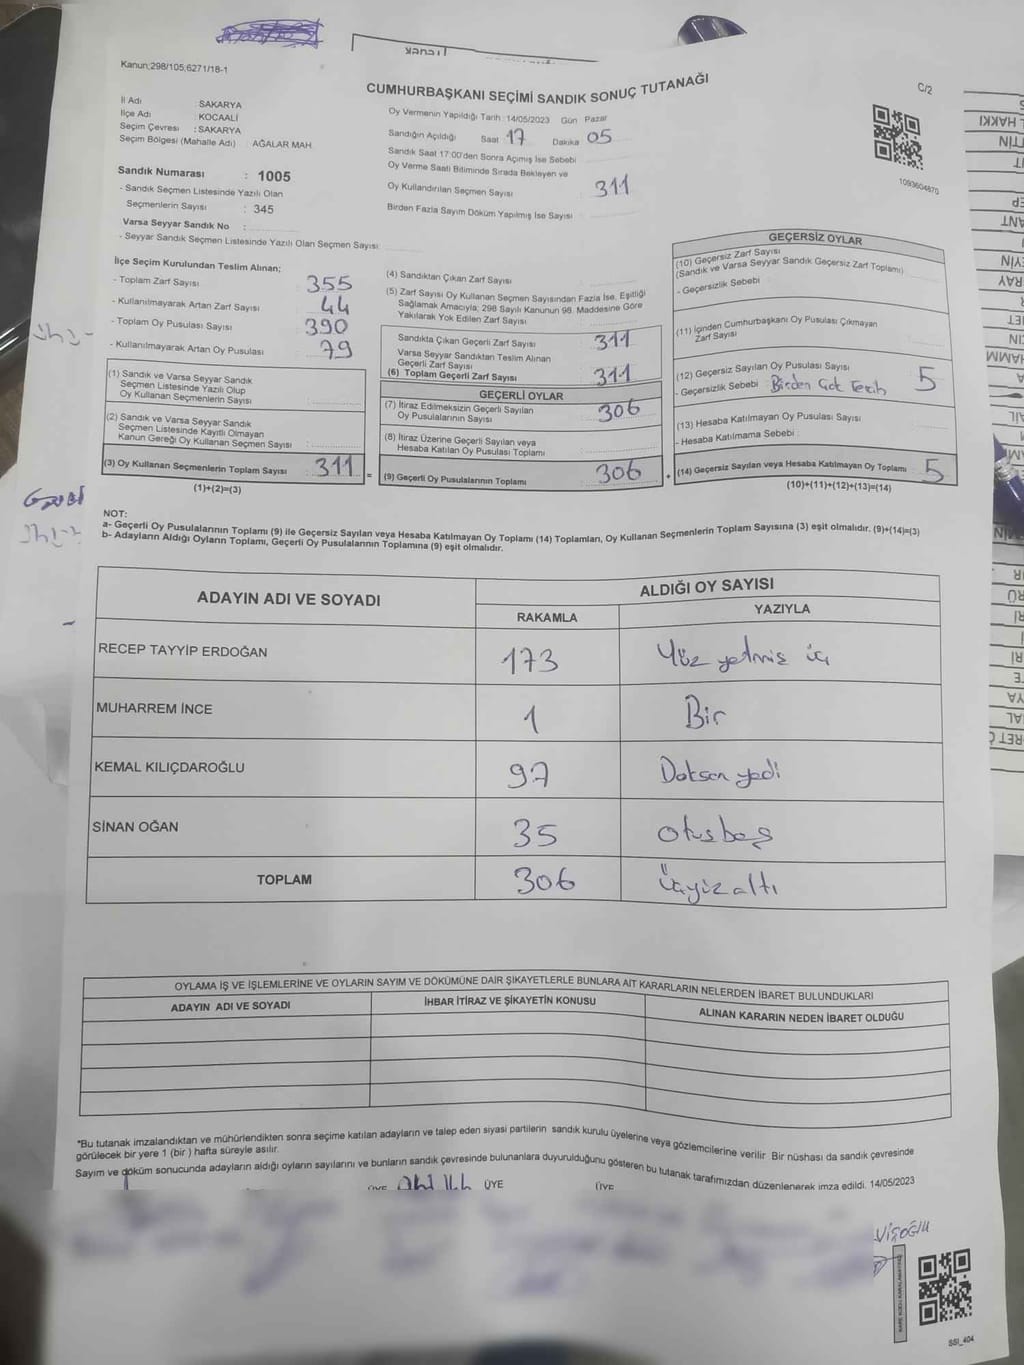 Kanun;298/105;6271/18-1
CUMHURBAŞKANI SEÇİMİ SANDIK SONUÇ TUTANAĞI
C/2
İl Adı : SAKARYA
İlçe Adı : KOCAALİ
Seçim Çevresi : SAKARYA
Seçim Bölgesi (Mahalle Adı) : AĞALAR MAH.
Sandık Numarası : 1005
- Sandık Seçmen Listesinde Yazılı Olan
Seçmenlerin Sayısı : 345
Varsa Seyyar Sandık No :
- Seyyar Sandık Seçmen Listesinde Yazılı Olan Seçmen Sayısı:
Oy Vermenin Yapıldığı Tarih : 14/05/2023 Gün Pazar
Sandığın Açıldığı Saat 17 Dakika 05
Sandık Saat 17:00'den Sonra Açımış İse Sebebi
Oy Verme Saati Bitiminde Sırada Bekleyen ve
Oy Kullandırılan Seçmen Sayısı 311
Birden Fazla Sayım Döküm Yapılmış İse Sayısı :
1093604870
İlçe Seçim Kurulundan Teslim Alınan;
- Toplam Zarf Sayısı : 355
- Kullanılmayarak Artan Zarf Sayısı : 44
- Toplam Oy Pusulası Sayısı : 390
- Kullanılmayarak Artan Oy Pusulası : 79
(1) Sandık ve Varsa Seyyar Sandık
Seçmen Listesinde Yazılı Olup
Oy Kullanan Seçmenlerin Sayısı
(2) Sandık ve Varsa Seyyar Sandık
Seçmen Listesinde Kayıtlı Olmayan
Kanun Gereği Oy Kullanan Seçmen Sayısı :
(3) Oy Kullanan Seçmenlerin Toplam Sayısı : 311
(1)+(2)=(3)
(4) Sandıktan Çıkan Zarf Sayısı :
(5) Zarf Sayısı Oy Kullanan Seçmen Sayısından Fazla İse, Eşitliği
Sağlamak Amacıyla; 298 Sayılı Kanunun 98. Maddesine Göre
Yakılarak Yok Edilen Zarf Sayısı :
Sandıkta Çıkan Geçerli Zarf Sayısı : 311
Varsa Seyyar Sandıktan Teslim Alınan
Geçerli Zarf Sayısı
(6) Toplam Geçerli Zarf Sayısı : 311
GEÇERLİ OYLAR
(7) İtiraz Edilmeksizin Geçerli Sayılan
Oy Pusulalarının Sayısı : 306
(8) İtiraz Üzerine Geçerli Sayılan veya
Hesaba Katılan Oy Pusulası Toplamı :
(9) Geçerli Oy Pusulalarının Toplamı : 306
GEÇERSİZ OYLAR
(10) Geçersiz Zarf Sayısı
(Sandık ve Varsa Seyyar Sandık Geçersiz Zarf Toplamı)
- Geçersizlik Sebebi
(11) İçinden Cumhurbaşkanı Oy Pusulası Çıkmayan
Zarf Sayısı
(12) Geçersiz Sayılan Oy Pusulası Sayısı 5
- Geçersizlik Sebebi : Birden Çok Tercih
(13) Hesaba Katılmayan Oy Pusulası Sayısı
- Hesaba Katılmama Sebebi :
(14) Geçersiz Sayılan veya Hesaba Katılmayan Oy Toplamı : 5
(10)+(11)+(12)+(13)=(14)
NOT:
a- Geçerli Oy Pusulalarının Toplamı (9) ile Geçersiz Sayılan veya Hesaba Katılmayan Oy Toplamı (14) Toplamları, Oy Kullanan Seçmenlerin Toplam Sayısına (3) eşit olmalıdır. (9)+(14)=(3)
b- Adayların Aldığı Oyların Toplamı, Geçerli Oy Pusulalarının Toplamına (9) eşit olmalıdır.
ADAYIN ADI VE SOYADI
ALDIĞI OY SAYISI
RAKAMLA YAZIYLA
RECEP TAYYİP ERDOĞAN 173 Yüz yetmiş üç
MUHARREM İNCE 1 Bir
KEMAL KILIÇDAROĞLU 97 Doksan yedi
SİNAN OĞAN 35 otuzbeş
TOPLAM 306 Üçyüzaltı
OYLAMA İŞ VE İŞLEMLERİNE VE OYLARIN SAYIM VE DÖKÜMÜNE DAİR ŞİKAYETLERLE BUNLARA AİT KARARLARIN NELERDEN İBARET BULUNDUKLARI
ADAYIN ADI VE SOYADI İHBAR İTİRAZ VE ŞİKAYETİN KONUSU ALINAN KARARIN NEDEN İBARET OLDUĞU
*Bu tutanak imzalandıktan ve mühürlendikten sonra seçime katılan adayların ve talep eden siyasi partilerin sandık kurulu üyelerine veya gözlemcilerine verilir Bir nüshası da sandık çevresinde
görülecek bir yere 1 (bir ) hafta süreyle asılır.
Sayım ve döküm sonucunda adayların aldığı oyların sayılarını ve bunların sandık çevresinde bulunanlara duyurulduğunu gösteren bu tutanak tarafımızdan düzenlenerek imza edildi. 14/05/2023
ÜYE ÜYE ÜYE
SSI_404